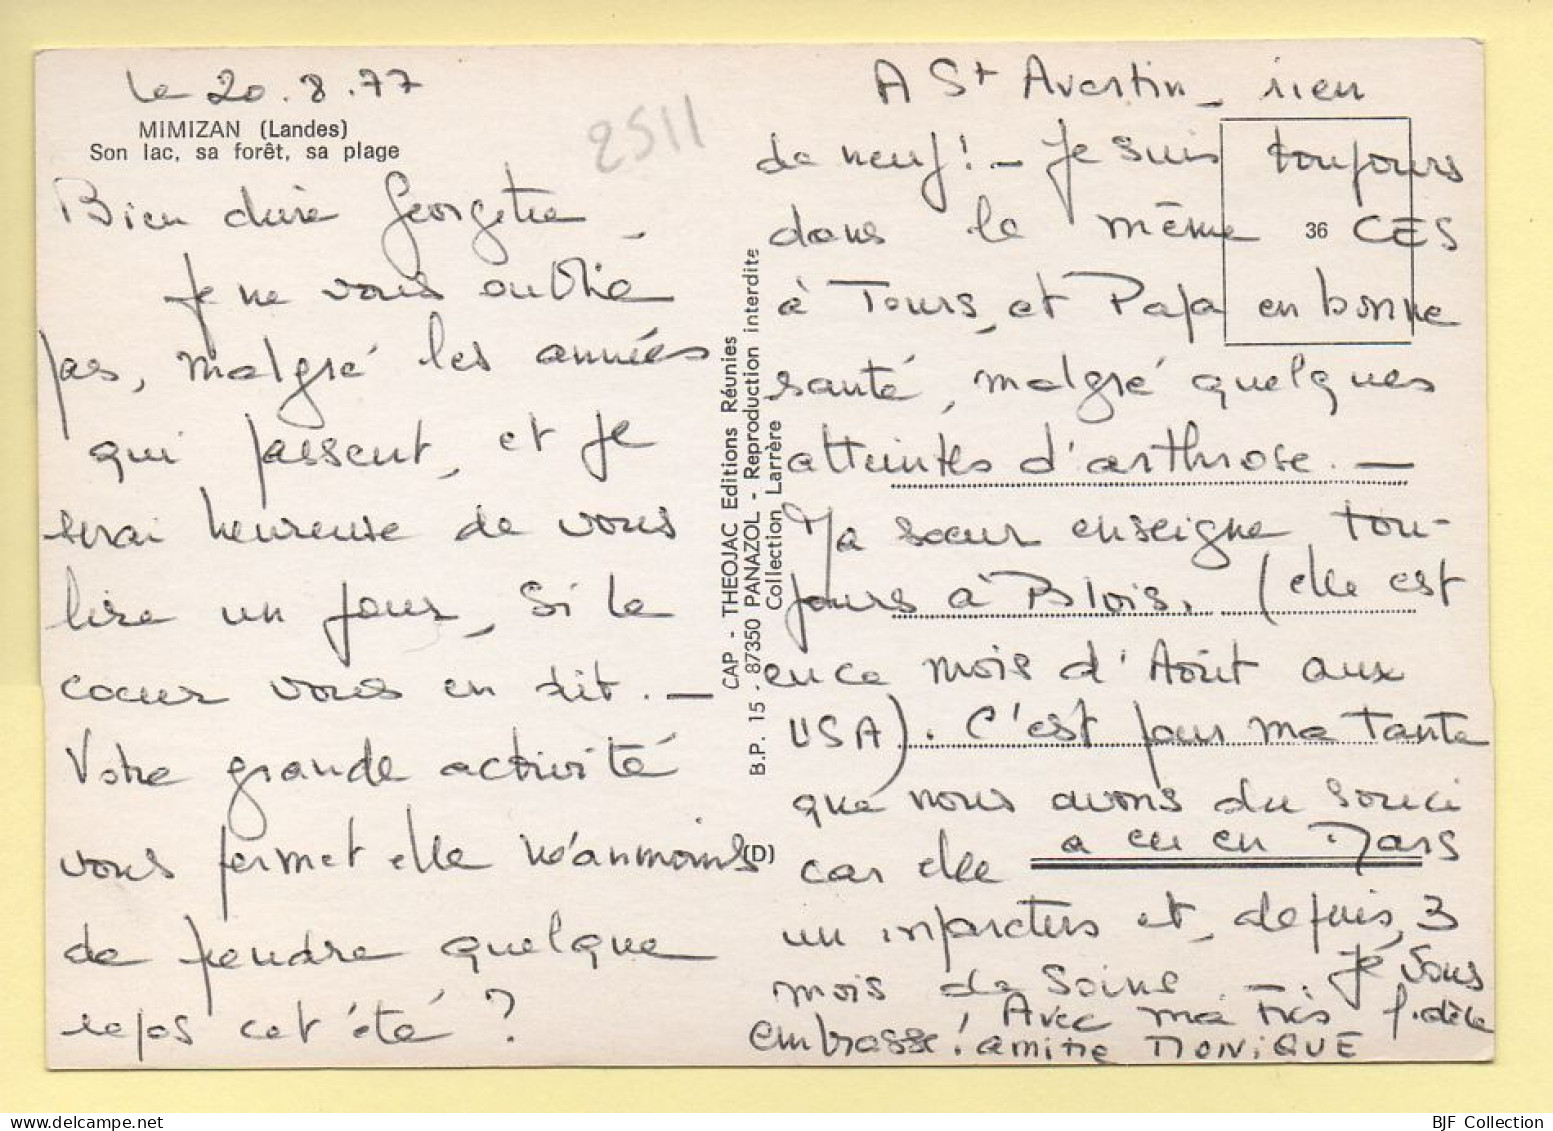 le 20.8.77
MIMIZAN (Landes)
Son lac, sa forêt, sa plage
2511
Bien chère Georgette -
Je ne vous oublie
pas, malgré les années
qui passent, et je
serai heureuse de vous
lire un jour, si le
coeur vous en dit. -
Votre grande activité
vous permet elle néanmoins
de prendre quelque
repos cet été ?
CAP - THEOJAC Editions Réunies
B.P. 15 - 87350 PANAZOL - Reproduction interdite
Collection Larrère
(D)
36
A St Avertin - rien
de neuf ! - Je suis toujours
dans le même CES
à Tours, et Papa en bonne
santé, malgré quelques
atteintes d'arthrose. -
Ma soeur enseigne tou-
jours à Blois. (elle est
en ce mois d'Août aux
USA). C'est pour ma Tante
que nous avons du souci
car elle a eu en Mars
un infarctus et, depuis, 3
mois de soins -. Je vous
embrasse ! Avec ma très fidèle
amitié MONIQUE
BJF Collection